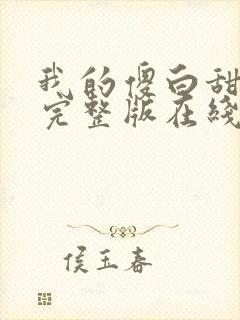 我的傻白甜
完整版在线
侯玉春